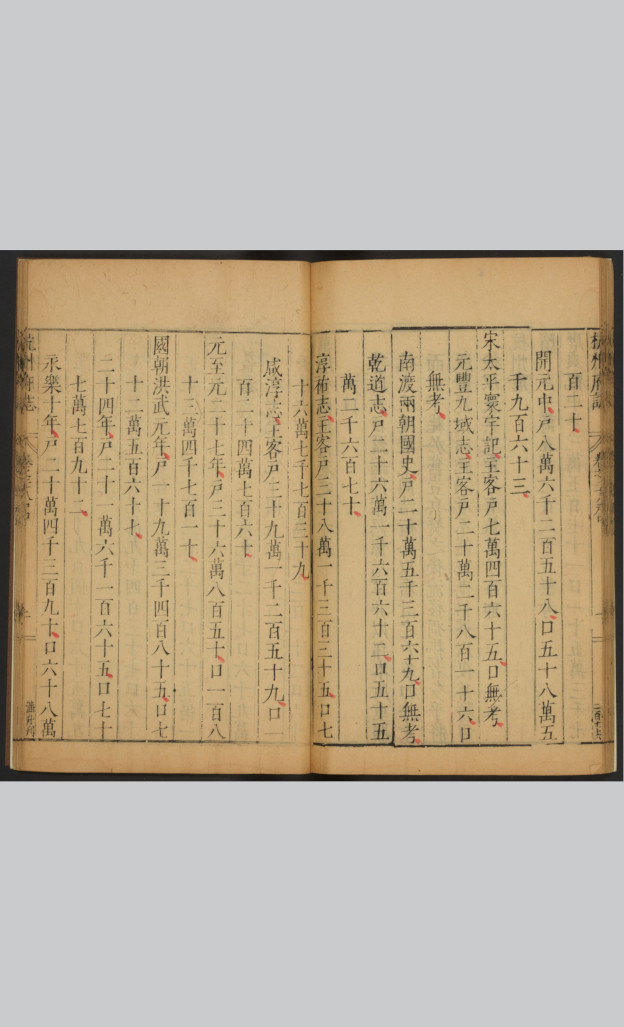 杭州府志
百二十
開元中戸八萬六千二百五十八口五十八萬五
千九百六十三
宋太平寰宇記主客戸七萬四百六十五口無考
元豐九域志主客戸二十萬二千八百一十六口
無考
南渡兩朝國史戸二十萬五千三百六十九口無考
乾道志戸二十六萬一千六百六十二口五十五
萬二千六百七十
淳祐志主客戸三十八萬一千三百三十五口七
十六萬七千七百三十九
咸淳志主客戸三十九萬一千二百五十九口一
百二十四萬七百六十
元至元二十七年戸三十六萬八百五十口一百八
十三萬四千七百一十
國朝洪武元年戸一十九萬三千四百八十五口七
十二萬五百六十七
二十四年戸二十一萬六千一百六十五口七十
七萬七百九十二
永樂十年戸二十萬四千三百九十口六十八萬
杭州府志